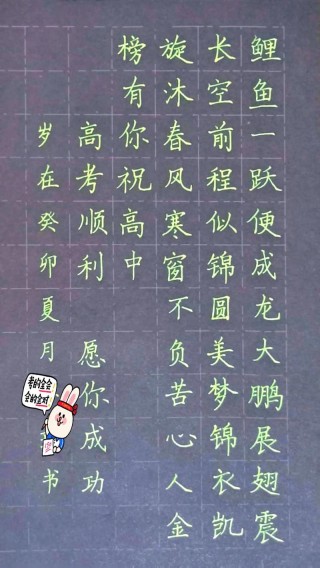 鲤鱼一跃便成龙大鹏展翅震
长空前程似锦圆美梦锦衣凯
旋沐春风寒窗不负苦心人金
榜有你祝高中
高考顺利 愿你成功
岁在癸卯夏月 书
考的全会
会的全对